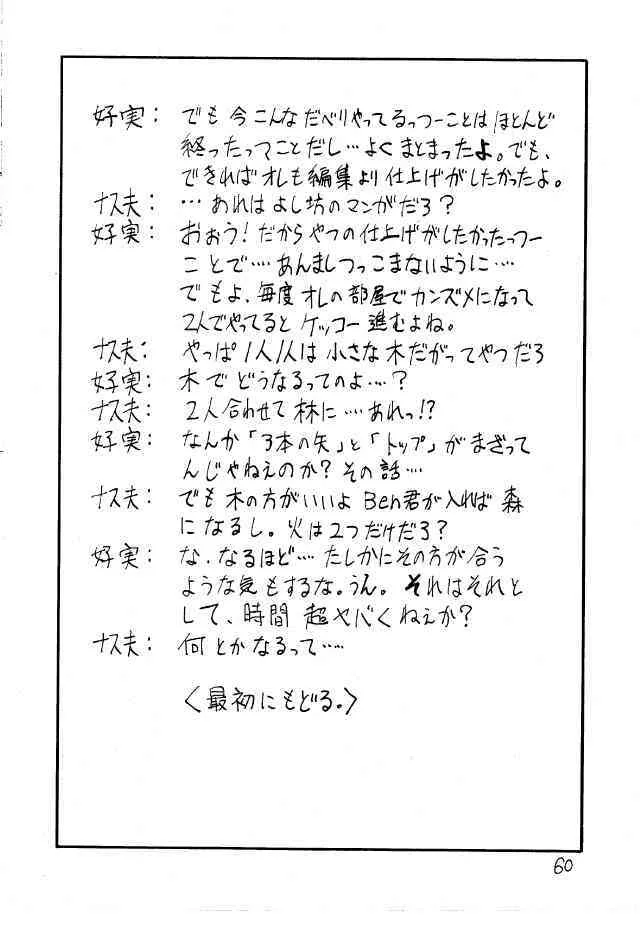 好実： でも今こんなだべりやってるっつーことはほとんど
終ったってことだし…よくまとまったよ。でも、
できればオレも編集より仕上げがしたかったよ。
ナス夫： …あれはよし坊のマンガだろ？
好実： おぉう！だからやつの仕上げがしたかったっつー
ことで‥‥あんましつっこまないように‥‥
でもよ、毎度オレの部屋でカンズメになって
2人でやってるとケッコー進むよね。
ナス夫： やっぱ1人1人は小さな木だがってやつだろ
好実： 木でどうなるってのよ‥‥？
ナス夫： 2人合わせて林に‥‥あれっ!?
好実： なんか「3本の矢」と「トップ」がまざって
んじゃねえのか？その話‥‥
ナス夫： でも木の方がいいよBen君が入れば森
になるし。火は2つだけだろ？
好実： な、なるほど‥‥たしかにその方が合う
ような気もするな。うん。それはそれと
して、時間超ヤバくねぇか？
ナス夫： 何とかなるって‥‥
〈最初にもどる。〉
60